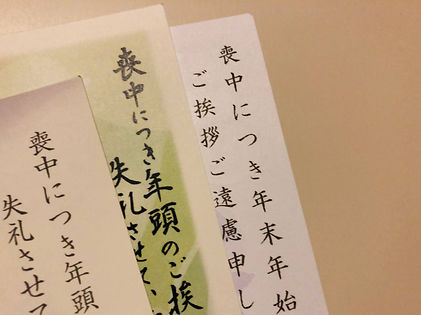 喪中につき年末年始
ご挨拶ご遠慮申し
喪中につき年頭のご挨
失礼させてい
喪中につき年頭
失礼させて